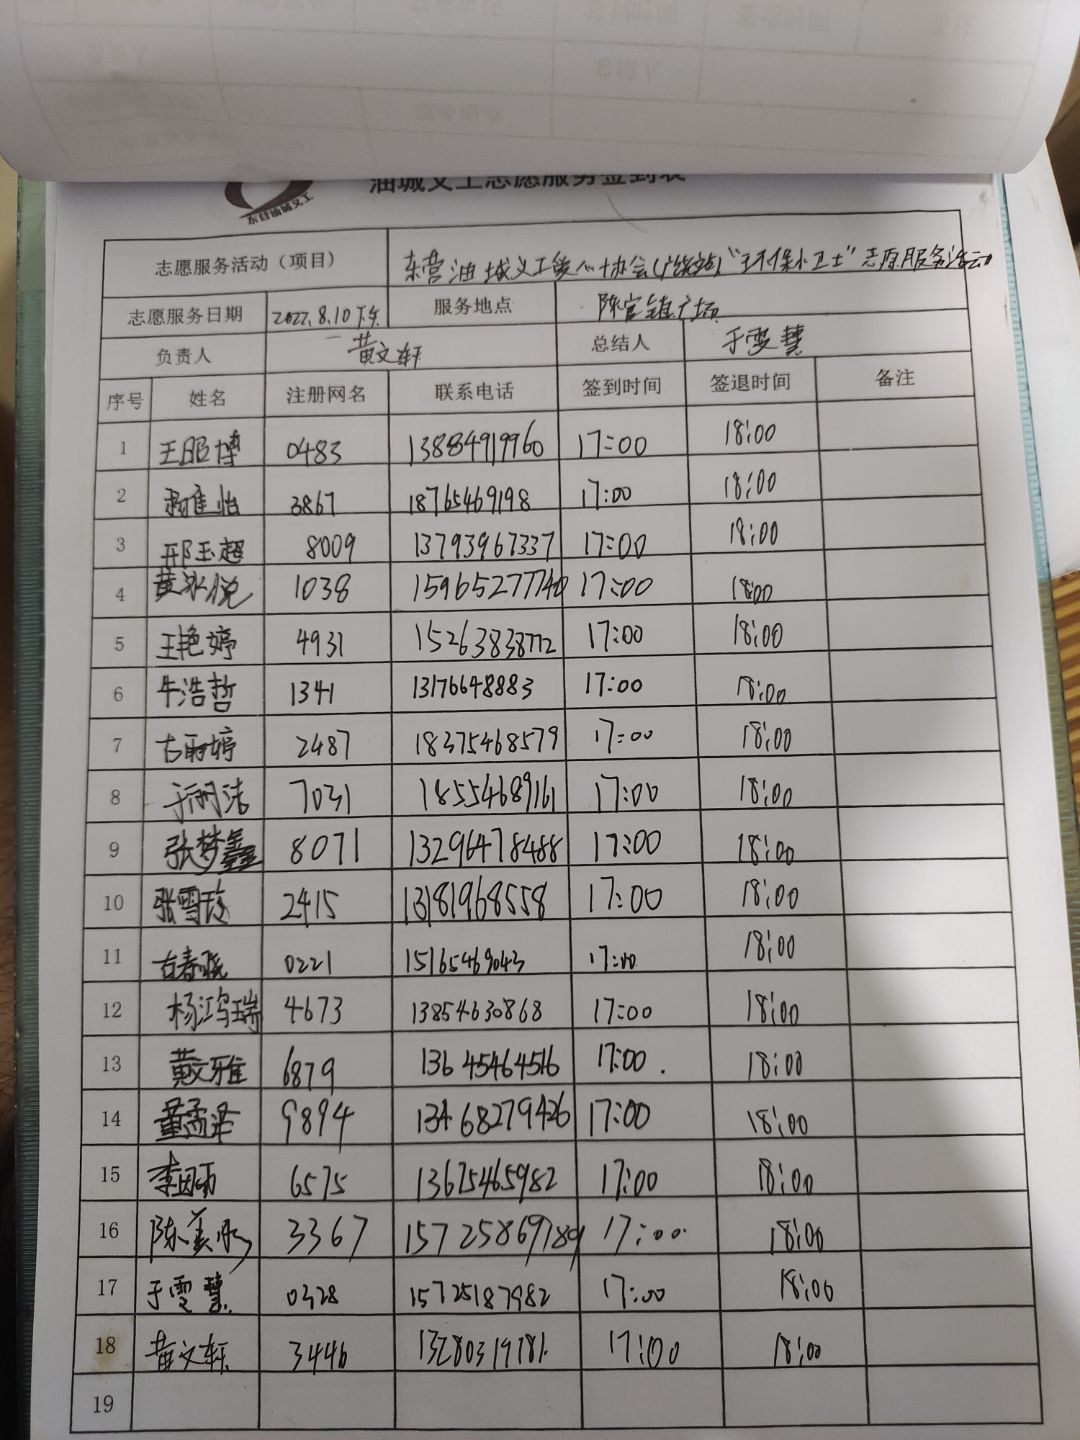 东营油城义工
油城义工志愿服务签到表
志愿服务活动（项目） 东营油城义工爱心协会广饶站"环保小卫士"志愿服务活动
志愿服务日期 2022.8.10下午 服务地点 陈官镇广场
负责人 黄文轩 总结人 于雯慧
序号 姓名 注册网名 联系电话 签到时间 签退时间 备注
1 王熙博 0483 13884919960 17:00 18:00
2 雅怡 3867 18765469198 17:00 18:00
3 邢玉超 8009 13793967337 17:00 18:00
4 黄冰悦 1038 15965277740 17:00 18:00
5 王艳婷 4931 15263838772 17:00 18:00
6 牛浩哲 1341 13176648883 17:00 18:00
7 古雨婷 2487 18375468579 17:00 18:00
8 于洁 7031 18554689161 17:00 18:00
9 张梦鑫 8071 13296478488 17:00 18:00
10 张雪 2415 13181968558 17:00 18:00
11 古春晓 0221 15165469043 17:00 18:00
12 杨江瑞 4673 13854630868 17:00 18:00
13 黄文雅 6879 13645464516 17:00 18:00
14 董孟泽 9894 13468279426 17:00 18:00
15 李雨 6575 13675465982 17:00 18:00
16 陈美 3367 15725869789 17:00 18:00
17 于雯慧 0328 15725187982 17:00 18:00
18 黄文轩 3446 13280319781 17:00 18:00
19